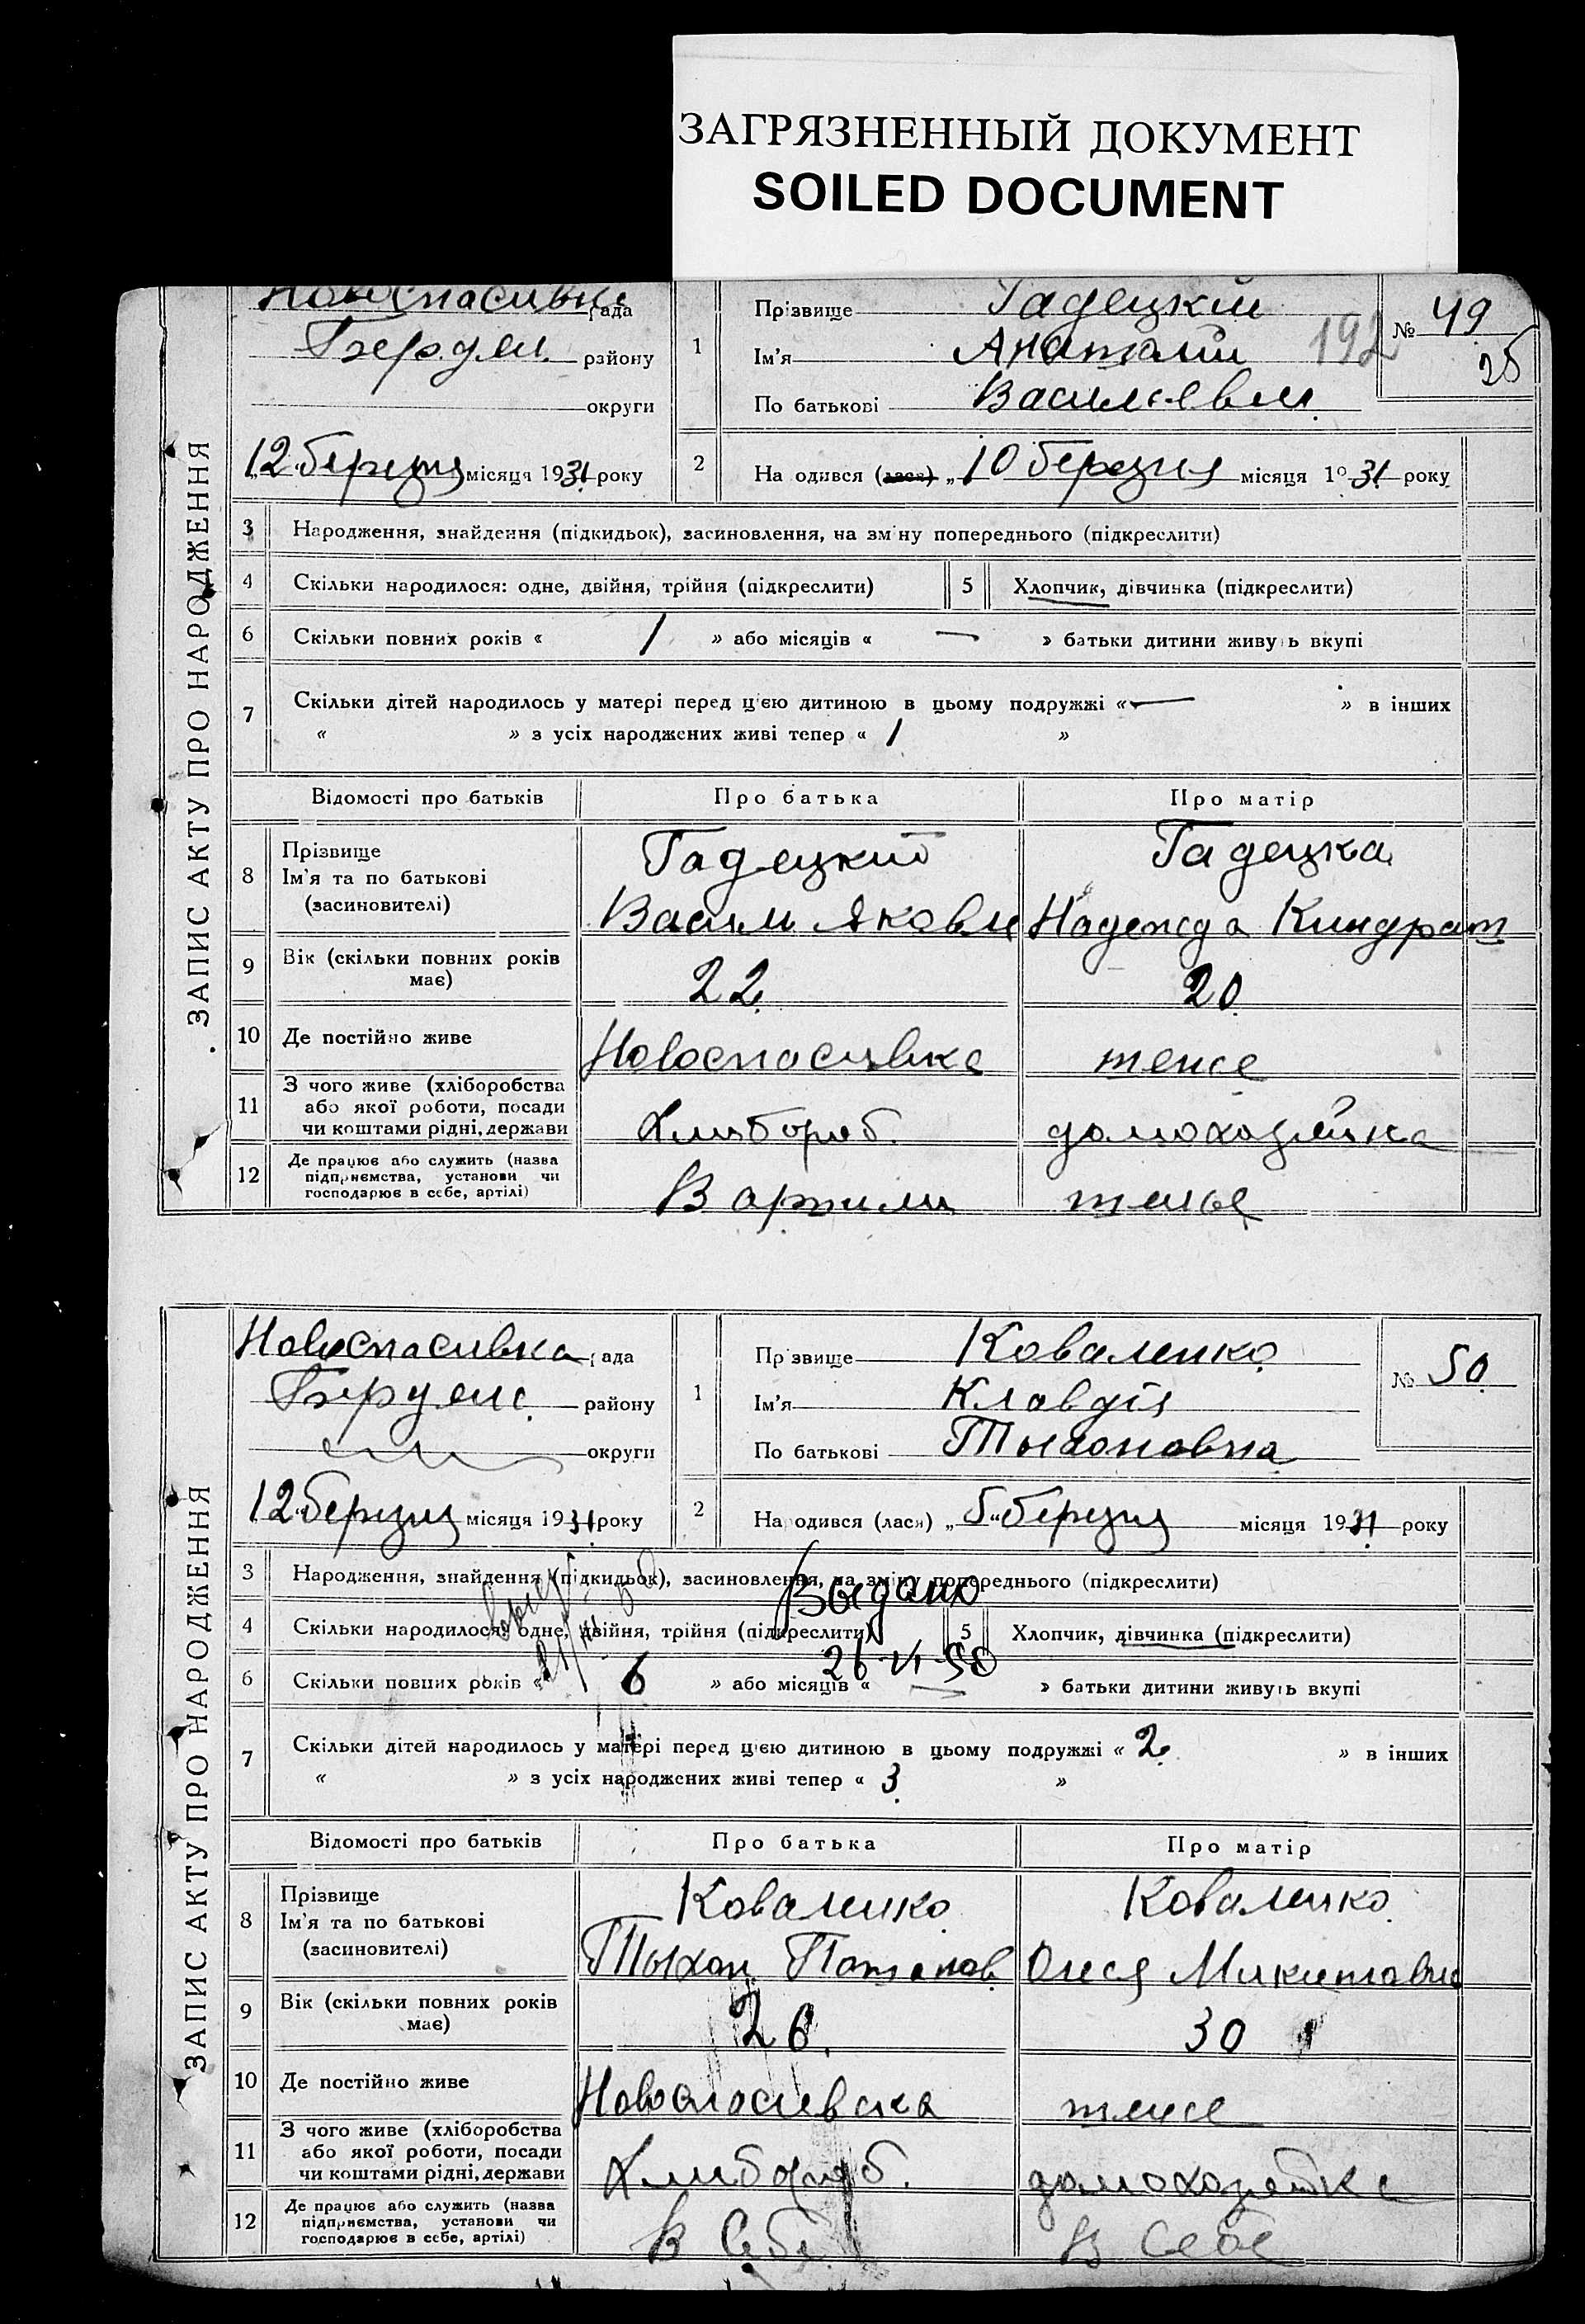 ЗАГРЯЗНЕННЫЙ ДОКУМЕНТ
SOILED DOCUMENT
ЗАПИС АКТУ ПРО НАРОДЖЕННЯ
Новоспасивка рада
Бердян. району
округи
„12 березня місяця 1931 року
1
Прізвище Гадецкий
Ім'я Анатолий
По батькові Васильевич
192
№ 49
25
2
Народився (лася) „10 березня місяця 1931 року
3 Народження, знайдення (підкидьок), засиновлення, на зміну попереднього (підкреслити)
4 Скільки народилося: одне, двійня, трійня (підкреслити)
5 Хлопчик, дівчинка (підкреслити)
6 Скільки повних років « 1 » або місяців « — » батьки дитини живуть вкупі
7 Скільки дітей народилось у матері перед цією дитиною в цьому подружжі « — » в інших
« » з усіх народжених живі тепер « 1 »
Відомості про батьків Про батька Про матір
8 Прізвище Ім'я та по батькові (засиновителі)
Гадецкий Гадецка
Васил Яковл Надежда Киндрат
9 Вік (скільки повних років має) 22 20
10 Де постійно живе Новоспасивка теже
11 З чого живе (хліборобства або якої роботи, посади чи коштами рідні, держави Хлибороб. домохозяйка
12 Де працює або служить (назва підприємства, установи чи господарює в себе, артілі) В артили теже
ЗАПИС АКТУ ПРО НАРОДЖЕННЯ
Новоспасивка рада
Бердянс. району
округи
„12 березня місяця 1931 року
1
Прізвище Коваленко
Ім'я Клавдія
По батькові Тыхоновна
№ 50
2
Народився (лася) „5 березня місяця 1931 року
3 Народження, знайдення (підкидьок), засиновлення, на зміну попереднього (підкреслити)
Выдано
4 Скільки народилося: одне, двійня, трійня (підкреслити)
5 Хлопчик, дівчинка (підкреслити)
26-VI-50
6 Скільки повних років « 6 » або місяців « — » батьки дитини живуть вкупі
7 Скільки дітей народилось у матері перед цією дитиною в цьому подружжі « 2 » в інших
« » з усіх народжених живі тепер « 3 »
Відомості про батьків Про батька Про матір
8 Прізвище Ім'я та по батькові (засиновителі)
Коваленко Коваленко
Тыхон Потапов Олеся Микитовна
9 Вік (скільки повних років має) 26. 30
10 Де постійно живе Новоспасивска теже
11 З чого живе (хліборобства або якої роботи, посади чи коштами рідні, держави Хлибороб. домохозяйка
12 Де працює або служить (назва підприємства, установи чи господарює в себе, артілі) В Себе В Себе